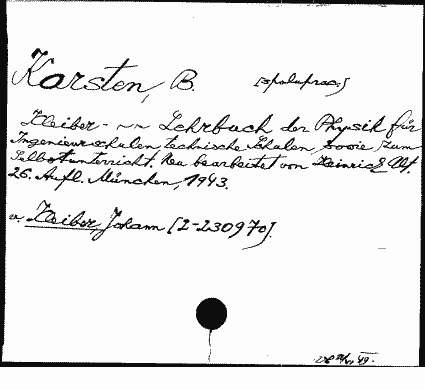 Karsten, B. [spoluprac.]
Kleiber - ~~ Lehrbuch der Physik für
Ingenieurschulen, technische Schulen, sowie zum
Selbstunterricht. Neu bearbeitet von Heinrich Alt.
26. Aufl. München, 1943.
v. Kleiber, Johann [2-230970].